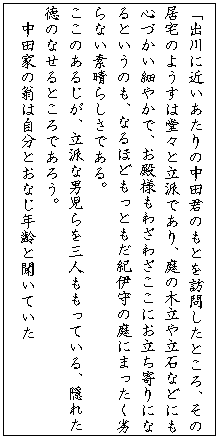 「出川に近いあたりの中田君のもとを訪問したところ、その
居宅のようすは堂々と立派であり、庭の木立や立石などにも
心づかい細やかで、お殿様もわざわざここにお立ち寄りにな
るというのも、なるほどもっともだ紀伊守の庭にまったく劣
らない素晴らしさである。
ここのあるじが、立派な男児らを三人ももっている、隠れた
徳のなせるところであろう。
中田家の翁は自分とおなじ年齢と聞いていた